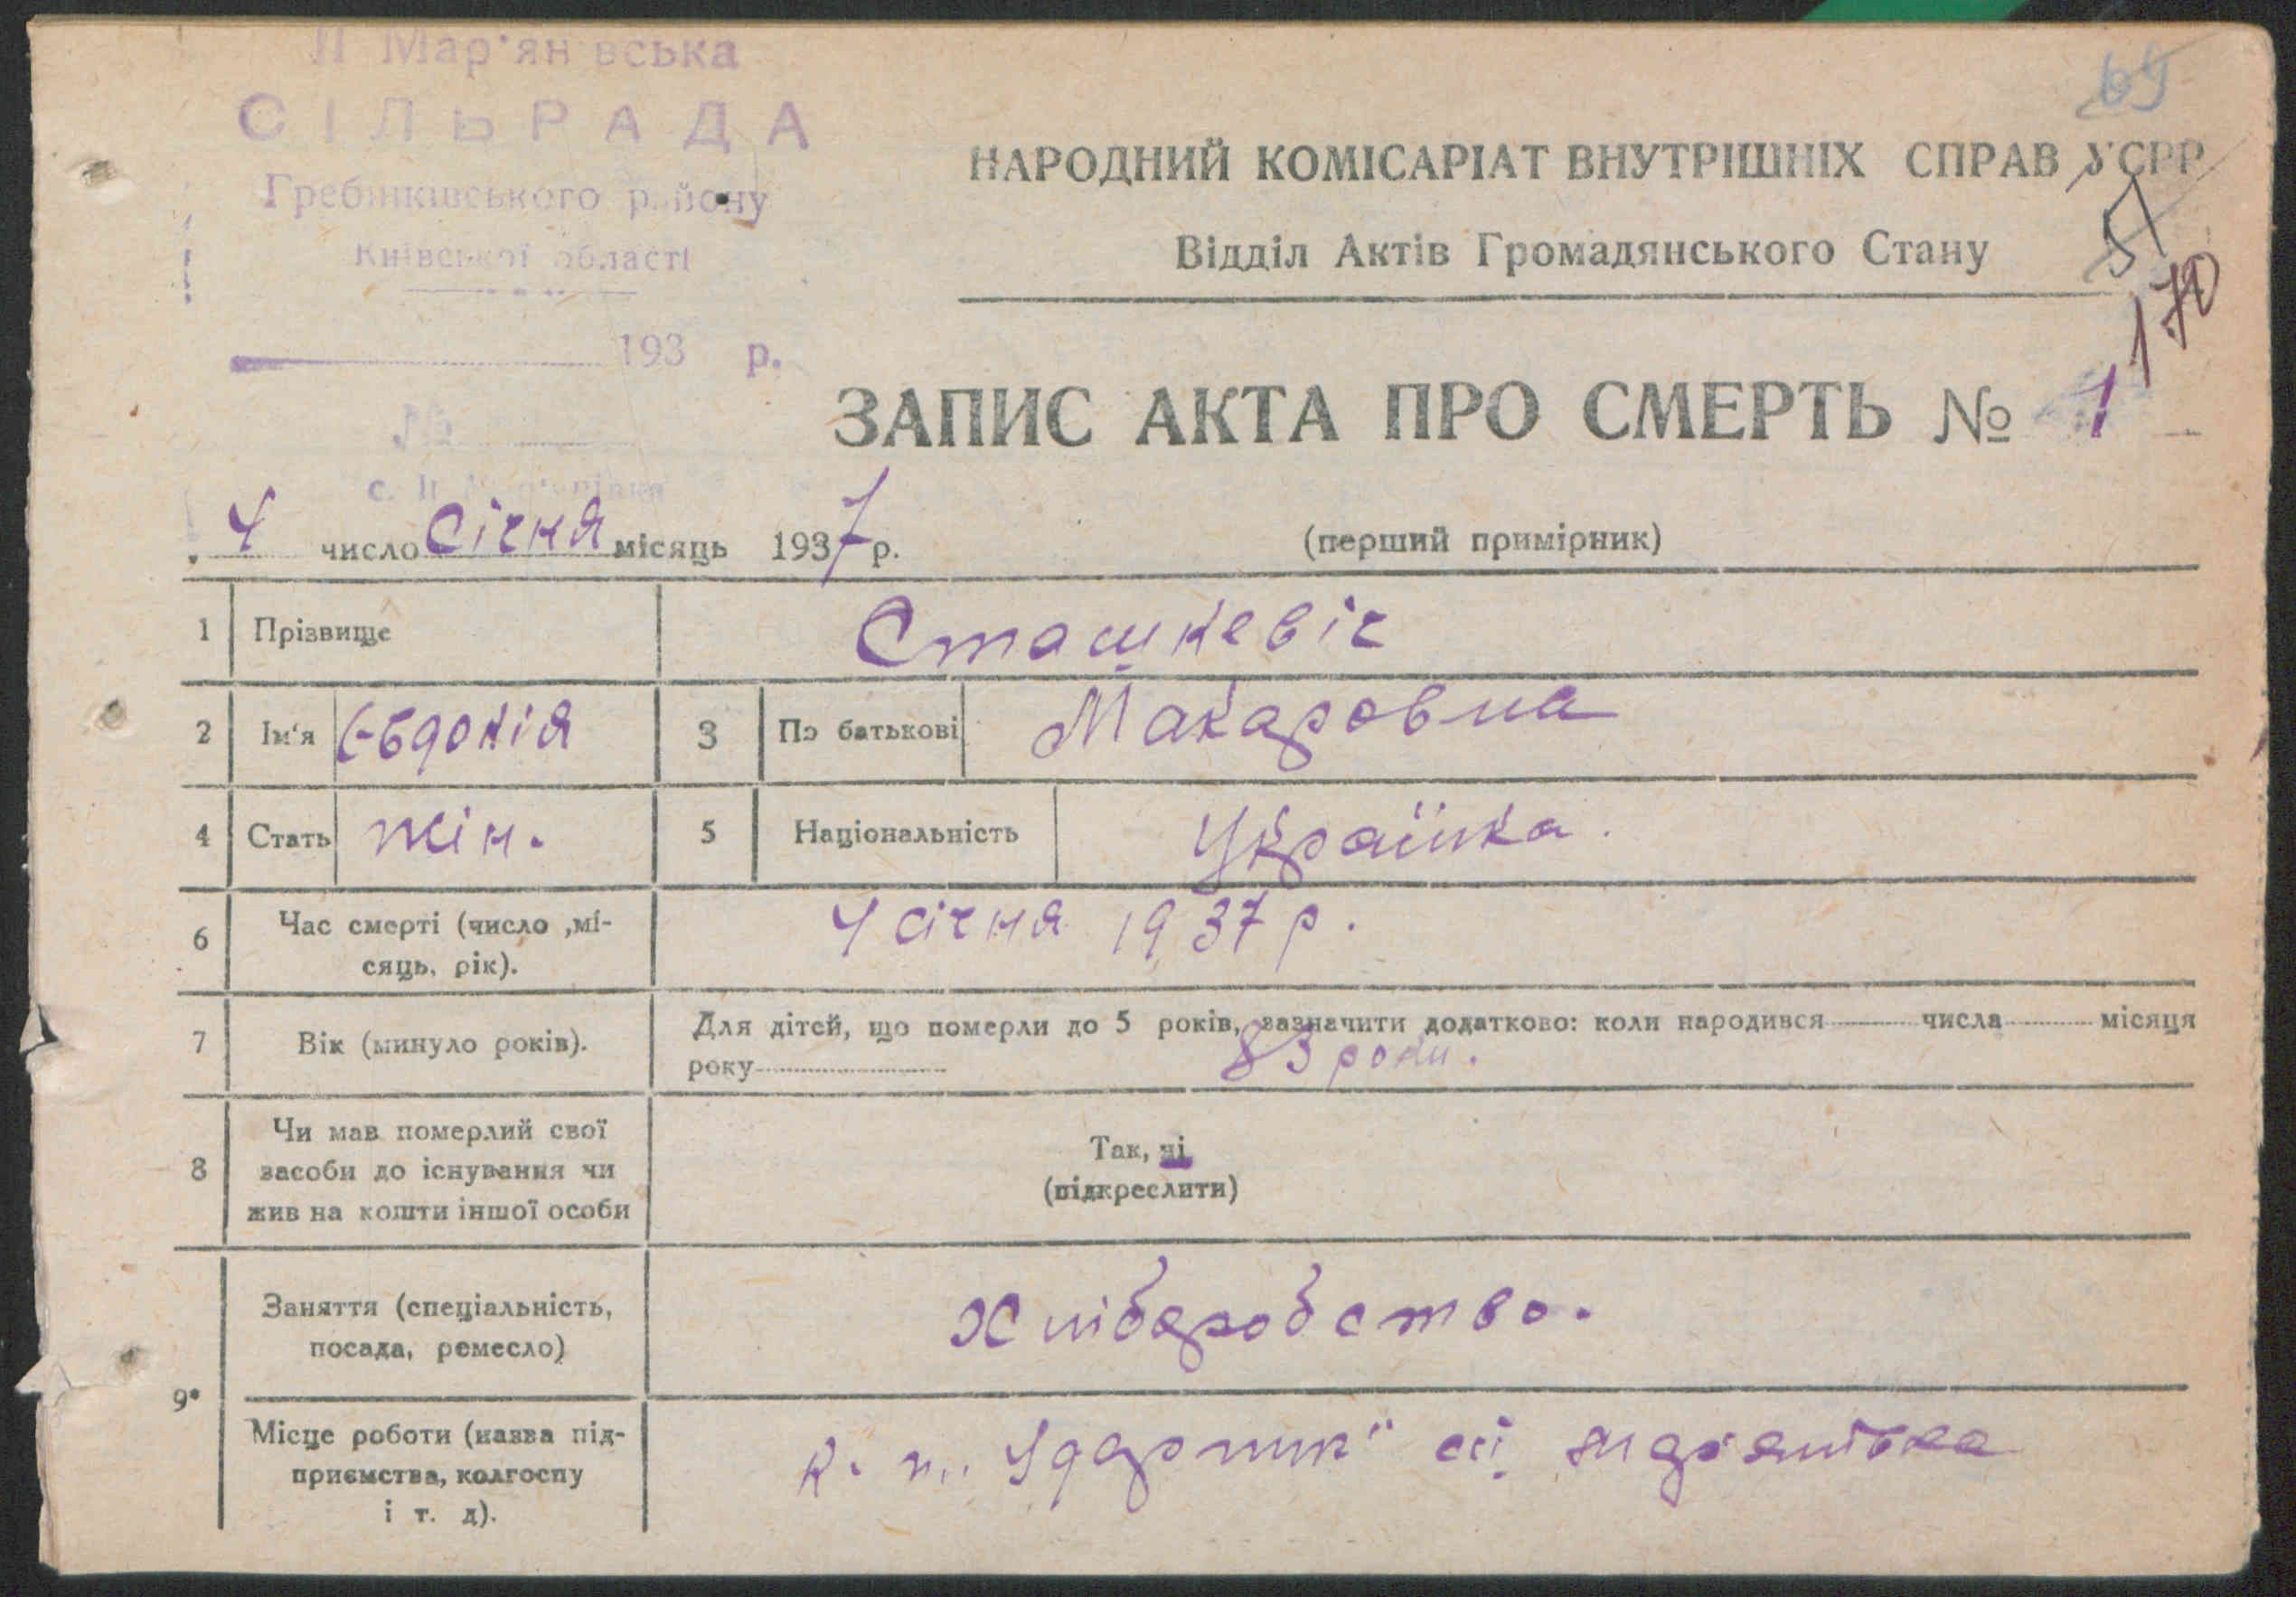 ІІ Мар'янівська
СІЛЬРАДА
Гребінківського району
Київської області
193 р.
№
с. ІІ Мар'янівка
69
НАРОДНИЙ КОМІСАРІАТ ВНУТРІШНІХ СПРАВ УСРР
51
Відділ Актів Громадянського Стану
170
ЗАПИС АКТА ПРО СМЕРТЬ № 1
4 число Січня місяць 1937 р.
(перший примірник)
1 Прізвище Сташкевіч
2 Ім'я Євдокія 3 По батькові Макаровна
4 Стать жін. 5 Національність Українка.
6 Час смерті (число ,мі-
сяць, рік).
4 січня 1937 р.
7 Вік (минуло років).
Для дітей, що померли до 5 років, зазначити додатково: коли народився числа місяця
року 83 роки.
8 Чи мав померлий свої
засоби до існування чи
жив на кошти іншої особи
Так, ні
(підкреслити)
9• Заняття (спеціальність,
посада, ремесло)
Хліборобство.
Місце роботи (назва під-
приємства, колгоспу
і т. д).
к. г. „Ударник" сіі Мар'янівка